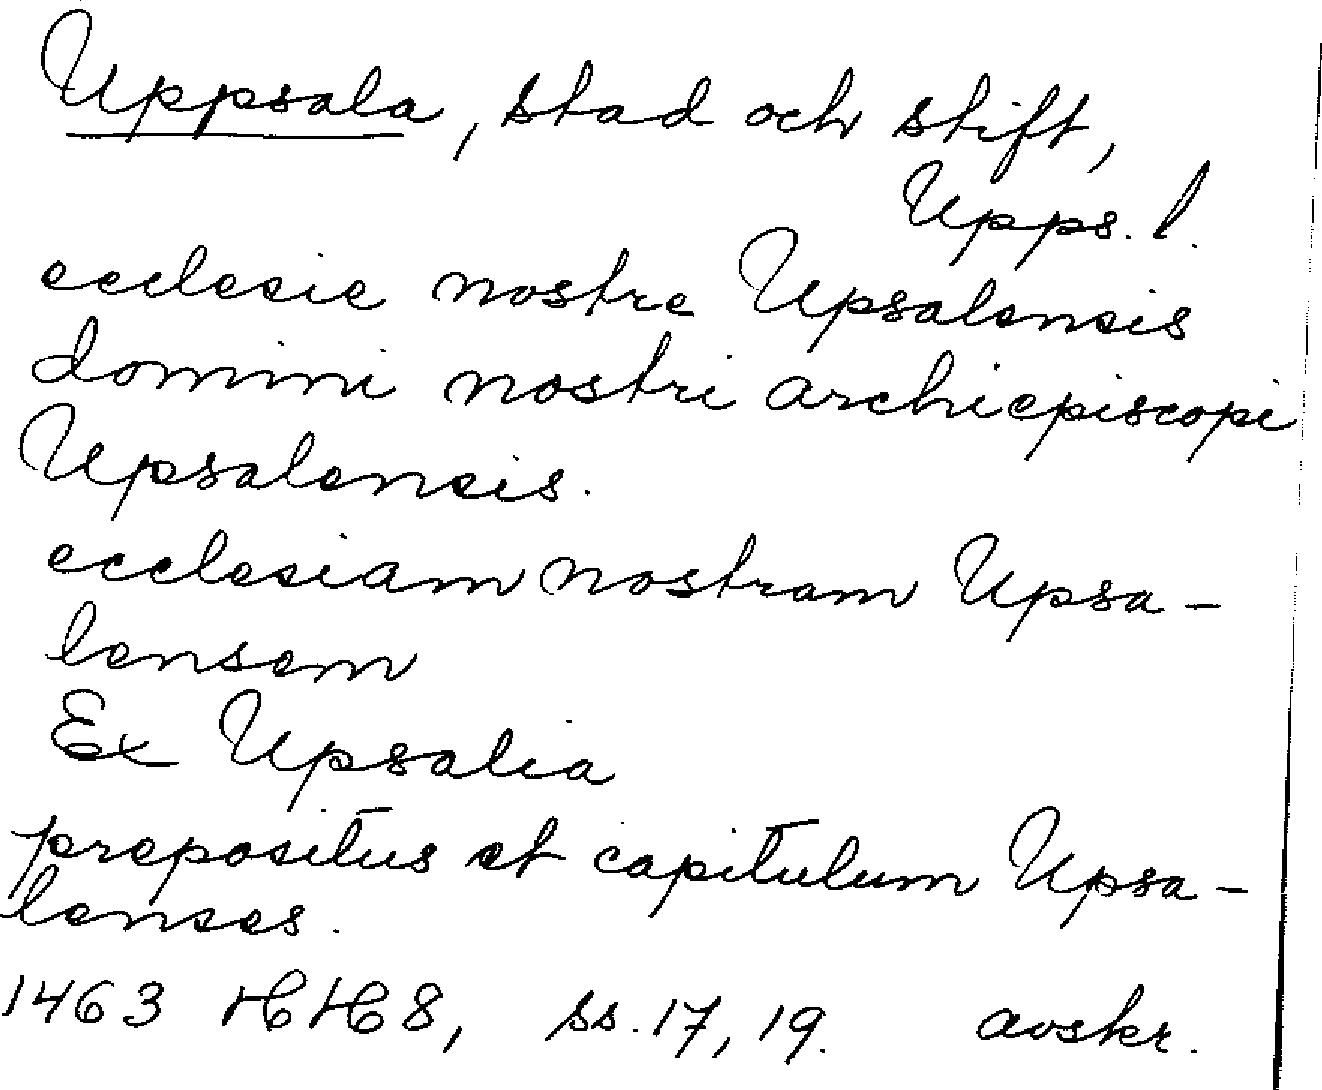 Uppsala, stad och stift,
Upps. l.
ecclesie nostre Upsalensis
domini nostri archiepiscopi
Upsalensis.
ecclesiam nostram Upsa-
lensem
Ex Upsalia
prepositus et capitulum Upsa-
lenses.
1463 HH 8, ss. 17, 19. avskr.